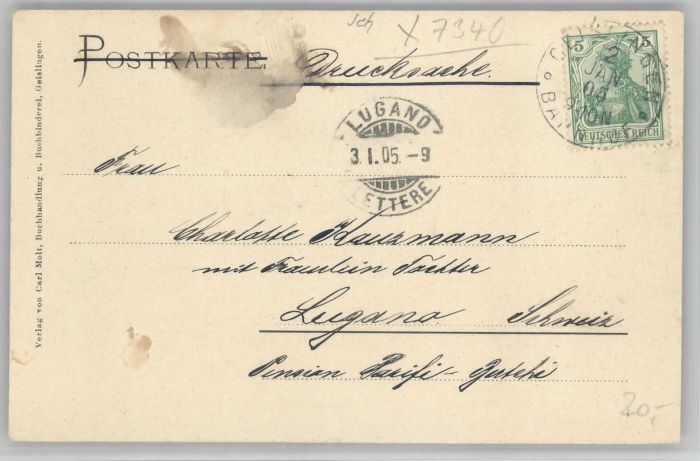 sch
X 7340
POSTKARTE. Drucksache.
5 5
DEUTSCHES REICH
2
JAN
05
LUGANO
3.I.05.-9
LETTERE
Frau
Charlotte Kauzmann
mit Fräulein Tochter
Lugano. Schweiz
Pension
20,-
Verlag von Carl Molt, Buchhandlung u. Buchbinderei, Geislingen.